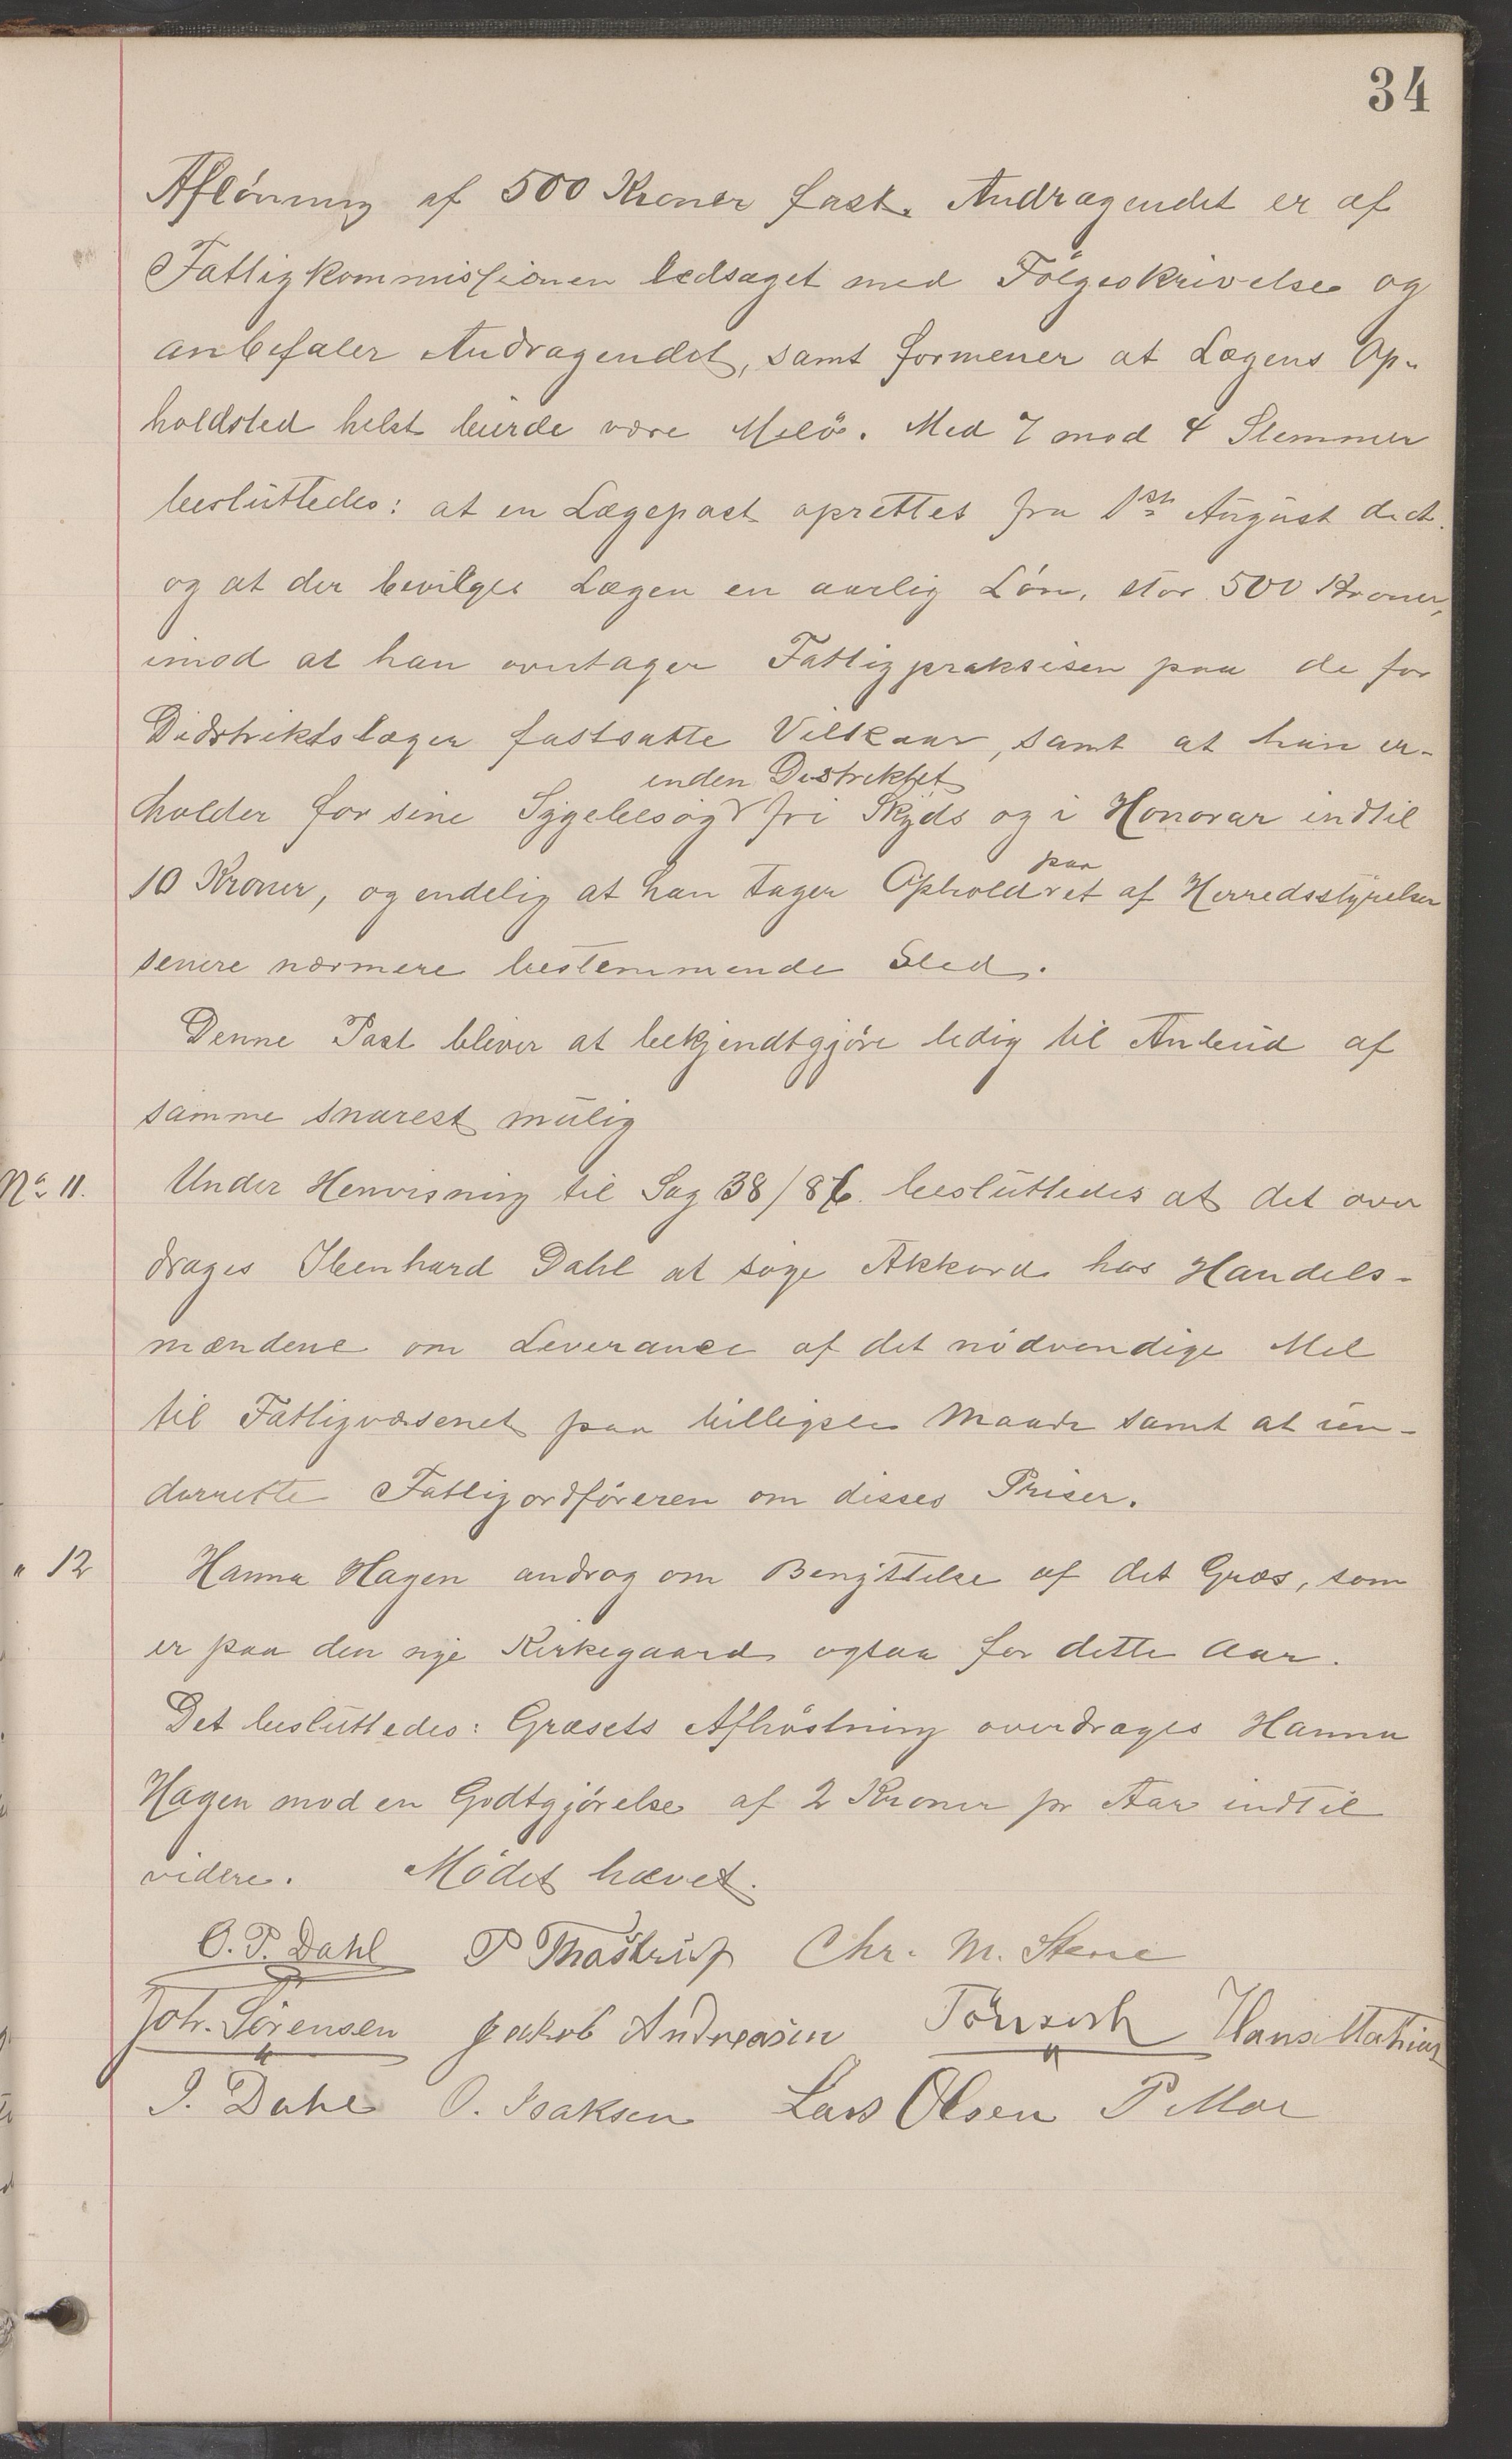 34
Aflönning af 500 Kroner fast. Andragendet er af
Fattigkommissionen ledsaget med Fölgeskrivelse og
anbefaler Andragendet, samt formener at Lægens Op-
holdsted helst burde være Melö. Med 7 mod 4 Stemmer
besluttedes: at en Lægepost oprettes fra 1ste August
og at der bevilges Lægen en aarlig Lön, stor 500 Kroner,
imod at han overtager Fattigpraksisen paa de for
Didstriktslæger fastsatte Vilkaar, samt at han er-
inden Distriktet
holder for sine Sygebesög fri Skyds og i Honorar indtil
paa
10 Kroner, og endelig at han tager Ophold et af Herredsstyrelsen
senere nærmere bestemmende Sted.
Denne Post bliver at bekjendtgjöre ledig til Anbud af
samme snarest mulig
No 11. Under Henvisning til Sag 38/86. besluttedes at det over
drages Ibenhard Dahl at söge Akkord hos Handels-
mændene om Leverance af det nödvendige Mel
til Fattigvæsenet paa billigste Maade samt at un-
derrette Fattigordföreren om disses Priser.
" 12 Hanna Hagen androg om Benyttelse af det Græs, som
er paa den nye Kirkegaard ogsaa for dette Aar.
Det besluttedes: Græsets Afhöstning overdrages Hanna
Hagen mod en Godtgjörelse af 2 Kroner pr Aar indtil
videre. Mödet hævet.
O. P. Dahl P Thostrup Chr. M. Stene
Joh. Sörensen Jakob Andreasen Hans Mathias
I. Dahl O. Isaksen Lars Olsen P Mor